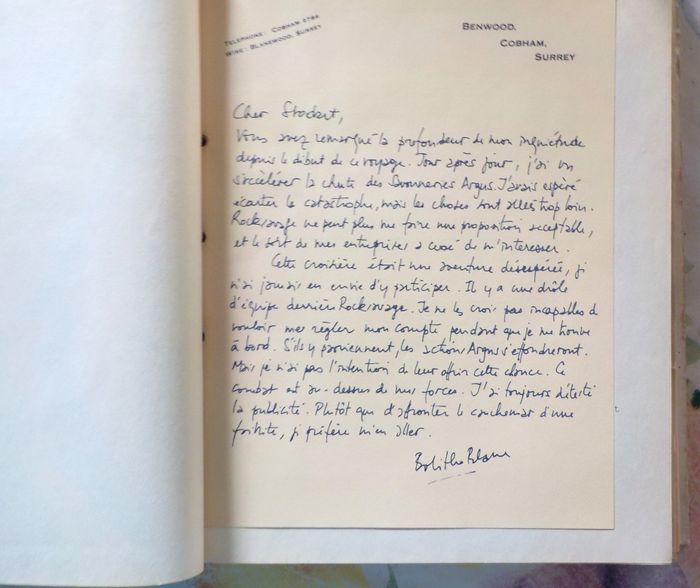 TELEPHONE: COBHAM 2784
WIRE: BLANEWOOD, SURREY
BENWOOD,
COBHAM,
SURREY
Cher Stodart,
Vous avez remarqué la profondeur de mon inquiétude
depuis le début de ce voyage. Jour après jour, j'ai vu
s'accélérer la chute des Savonneries Argus. J'avais espéré
écarter la catastrophe, mais les choses sont allées trop loin.
Rocksavage ne peut plus me faire une proposition acceptable,
et le sort de mes entreprises a cessé de m'intéresser.
Cette croisière était une aventure désespérée, je
n'ai jamais eu envie d'y participer. Il y a une drôle
d'équipe derrière Rocksavage. Je ne les crois pas incapables de
vouloir me régler mon compte pendant que je me trouve
à bord. S'ils y parviennent, les actions Argus s'effondreront.
Mais je n'ai pas l'intention de leur offrir cette chance. Ce
combat est au-dessus de mes forces. J'ai toujours détesté
la publicité. Plutôt que d'affronter le cauchemar d'une
faillite, je préfère m'en aller.
Bolitho Blane